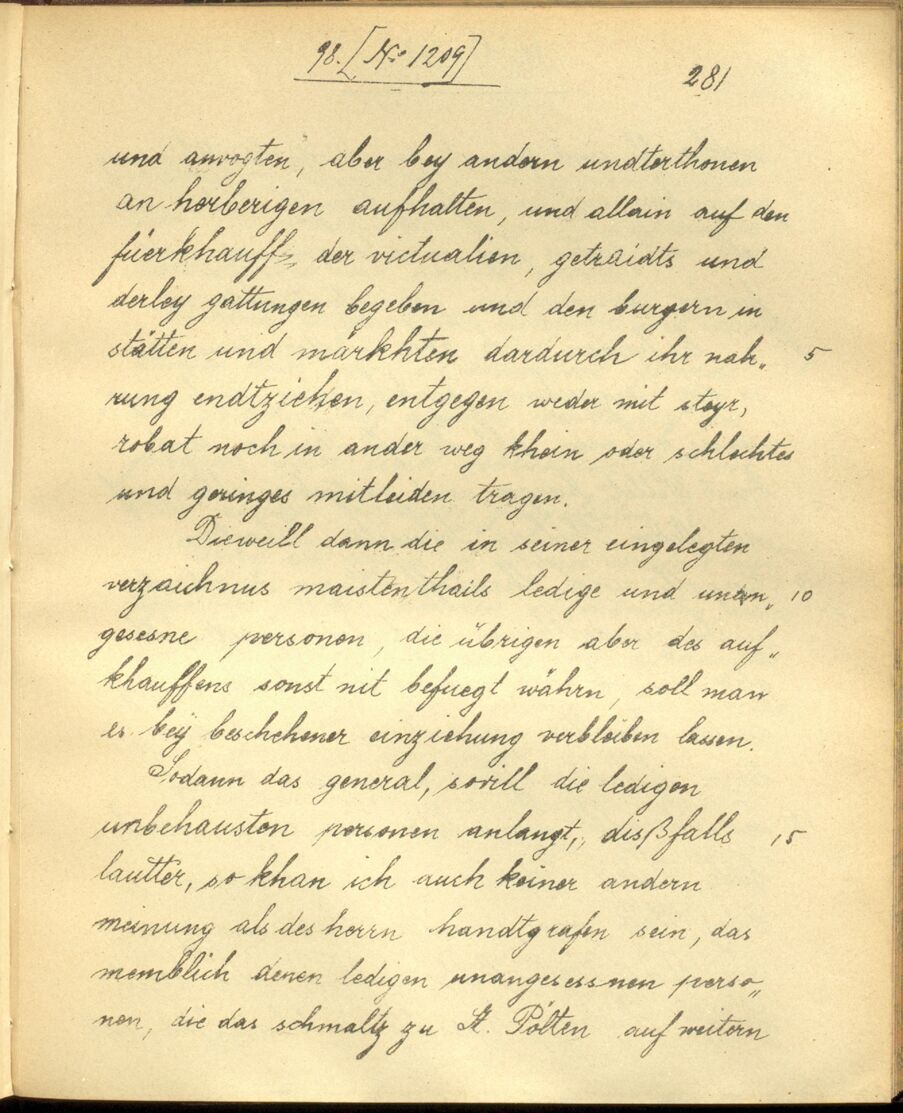 98. [No 1209]
281
und anvogten, aber bey andern undterthonen
an herberigen aufhalten, und allain auf den
füerkhauff der victualien, getraidts und
derley gattungen begeben und den burgern in
stätten und märkhten dardurch ihr nah„ 5
rung endtziehen, entgegen weder mit steyr,
robat noch in ander weg khein oder schlechtes
und geringes mitleiden tragen.
Dieweill dann die in seiner eingelegten
verzaichnus maistenthails ledige und unan„ 10
gesesne personen, die übrigen aber des auf„
khauffens sonst nit befuegt währn, soll man
es bey beschehener einziehung verbleiben lassen.
Sodann das general, sovill die ledigen
unbehausten personen anlangt, dißfalls 15
lautter, so khan ich auch keiner andern
meinung als des herrn handtgrafen sein, das
nemblich denen ledigen unangesessnen perso„
nen, die das schmaltz zu St. Pölten auf weitern